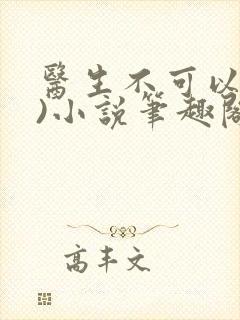 醫生不可以
)小說筆趣閣
高丰文